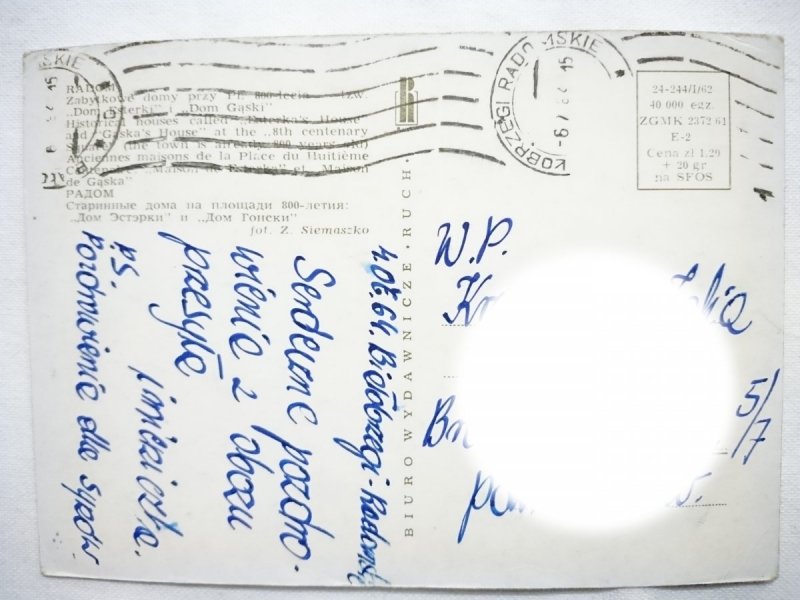 RADOM
Zabytkowe domy przy Pl. 800-lecia tzw.
"Dom Esterki" i "Dom Gąski"
Historical houses called "Esterka's House"
and "Gąska's House" at the "8th centenary
(the town is already 800 years old)
Anciennes maisons de la Place du Huitième
Centenaire "Maison de Esterka" et "Maison
de Gąska"
РАДОМ
Старинные дома на площади 800-летия:
"Дом Эстэрки" и "Дом Гонски"
fot. Z. Siemaszko
BIURO WYDAWNICZE • RUCH •
KOBRZEGI RADOMSKIE
-6.7.64 15
SKIE
15
24-244/I/62
40 000 egz.
ZGMK 2372 61
E-2
Cena zł 1.20
+ 20 gr
na SFOS
4.07.64. Białobrzegi-Radomskie
Serdeczne pozdro-
wienia z obozu
przesyła
P.S.
Pozdrowienia dla
W.P.
5/7